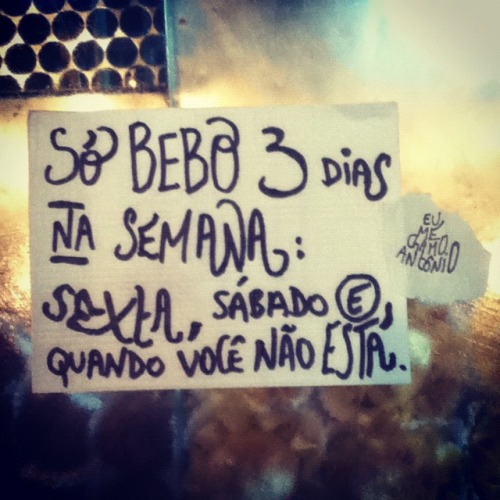 SÓ BEBO 3 DIAS
NA SEMANA:
SEXTA, SÁBADO E,
QUANDO VOCÊ NÃO ESTÁ.
EU,
ME
CHAMO
ANTÔNIO